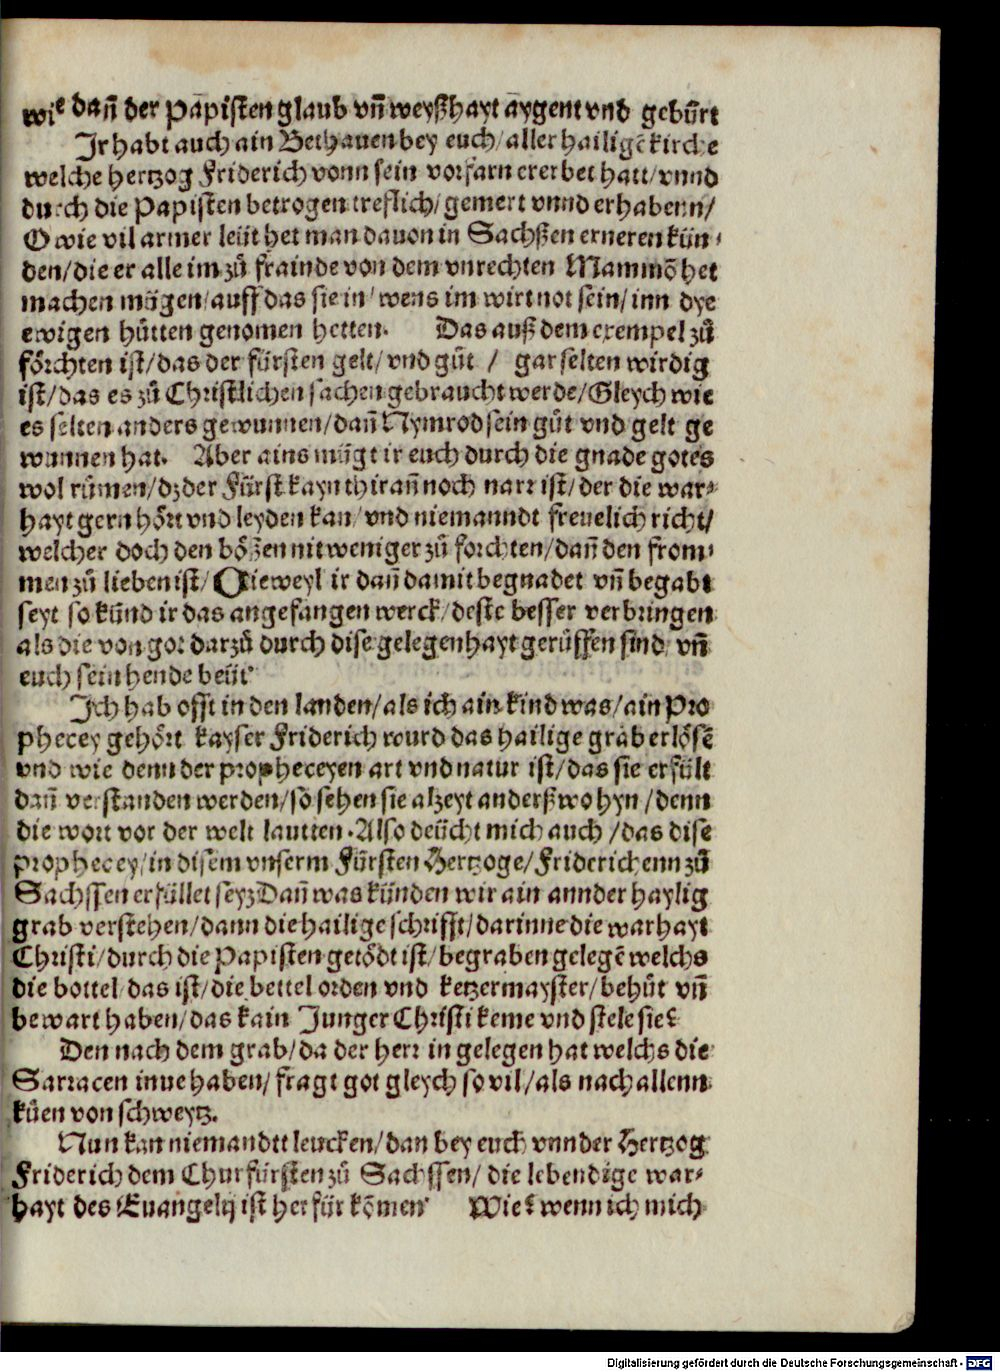 wie dañ der Papisten glaub vñ weyßhayt aygent vnd gebürt
Jr habt auch ain Bethauen bey euch/ aller hailigẽ kirche
welche hertzog Friderich vonn sein vorfarn ererbet hatt/ vnnd
durch die Papisten betrogen treflich/ gemert vnnd erhabenn/
O wie vil armer leüt het man dauon in Sachßen erneren kün⸗
den/ die er alle im zů frainde von dem vnrechten Mammõ het
machen mügen/ auff das sie in/ wens im wirt not sein/ inn dye
ewigen hütten genomen hetten. Das auß dem exempel zů
förchten ist/ das der fürsten gelt/ vnd gůt / gar selten wirdig
ist/ das es zů Christlichen sachen gebraucht werde/ Gleych wie
es selten anders gewunnen/ dañ Nymrod sein gůt vnd gelt ge
wunnen hat. Aber ains mügt ir euch durch die gnade gotes
wol rümen/ dz der Fürst kayn thirañ noch narr ist/ der die war⸗
hayt gern hört vnd leyden kan/ vnd niemanndt freuelich richt/
welcher doch den bößen nit weniger zů forchten/ dañ den from⸗
men zů lieben ist/ Dieweyl ir dañ damit begnadet vñ begabt
seyt so künd ir das angefangen werck/ deste besser verbringen
als die von got darzů durch dise gelegenhayt gerüffen sind/ vñ
euch sein hende beüt
Jch hab offt in den landen/ als ich ain kind was/ ain Pro
phecey gehört kayser Friderich wurd das hailige grab erlösẽ
vnd wie denn der propheceyen art vnd natur ist/ das sie erfült
dañ verstanden werden/ so sehen sie alzeyt anderßwo hyn / denn
die wort vor der welt lautten. Also deücht mich auch / das dise
prophecey/ in disem vnserm Fürsten Hertzoge/ Friderichenn zů
Sachssen erfüllet seyz Dañ was künden wir ain annder haylig
grab verstehen/ dann die hailige schrifft/ darinne die warhayt
Christi/ durch die Papisten getödt ist/ begraben gelegẽ welchs
die bottel/ das ist/ die bettel orden vnd ketzermayster/ behüt vñ
bewart haben/ das kain Junger Christi keme vnd stele sie?
Den nach dem grab/ da der herr in gelegen hat welchs die
Sarracen inne haben/ fragt got gleych so vil/ als nach allenn
küen von schweytz.
Nun kan niemandtt leucken/ dan bey euch vnnder Hertzog
Friderich dem Churfürsten zů Sachssen/ die lebendige war⸗
hayt des Euangelij ist herfür kõmen Wie? wenn ich mich
Digitalisierung gefördert durch die Deutsche Forschungsgemeinschaft - DFG